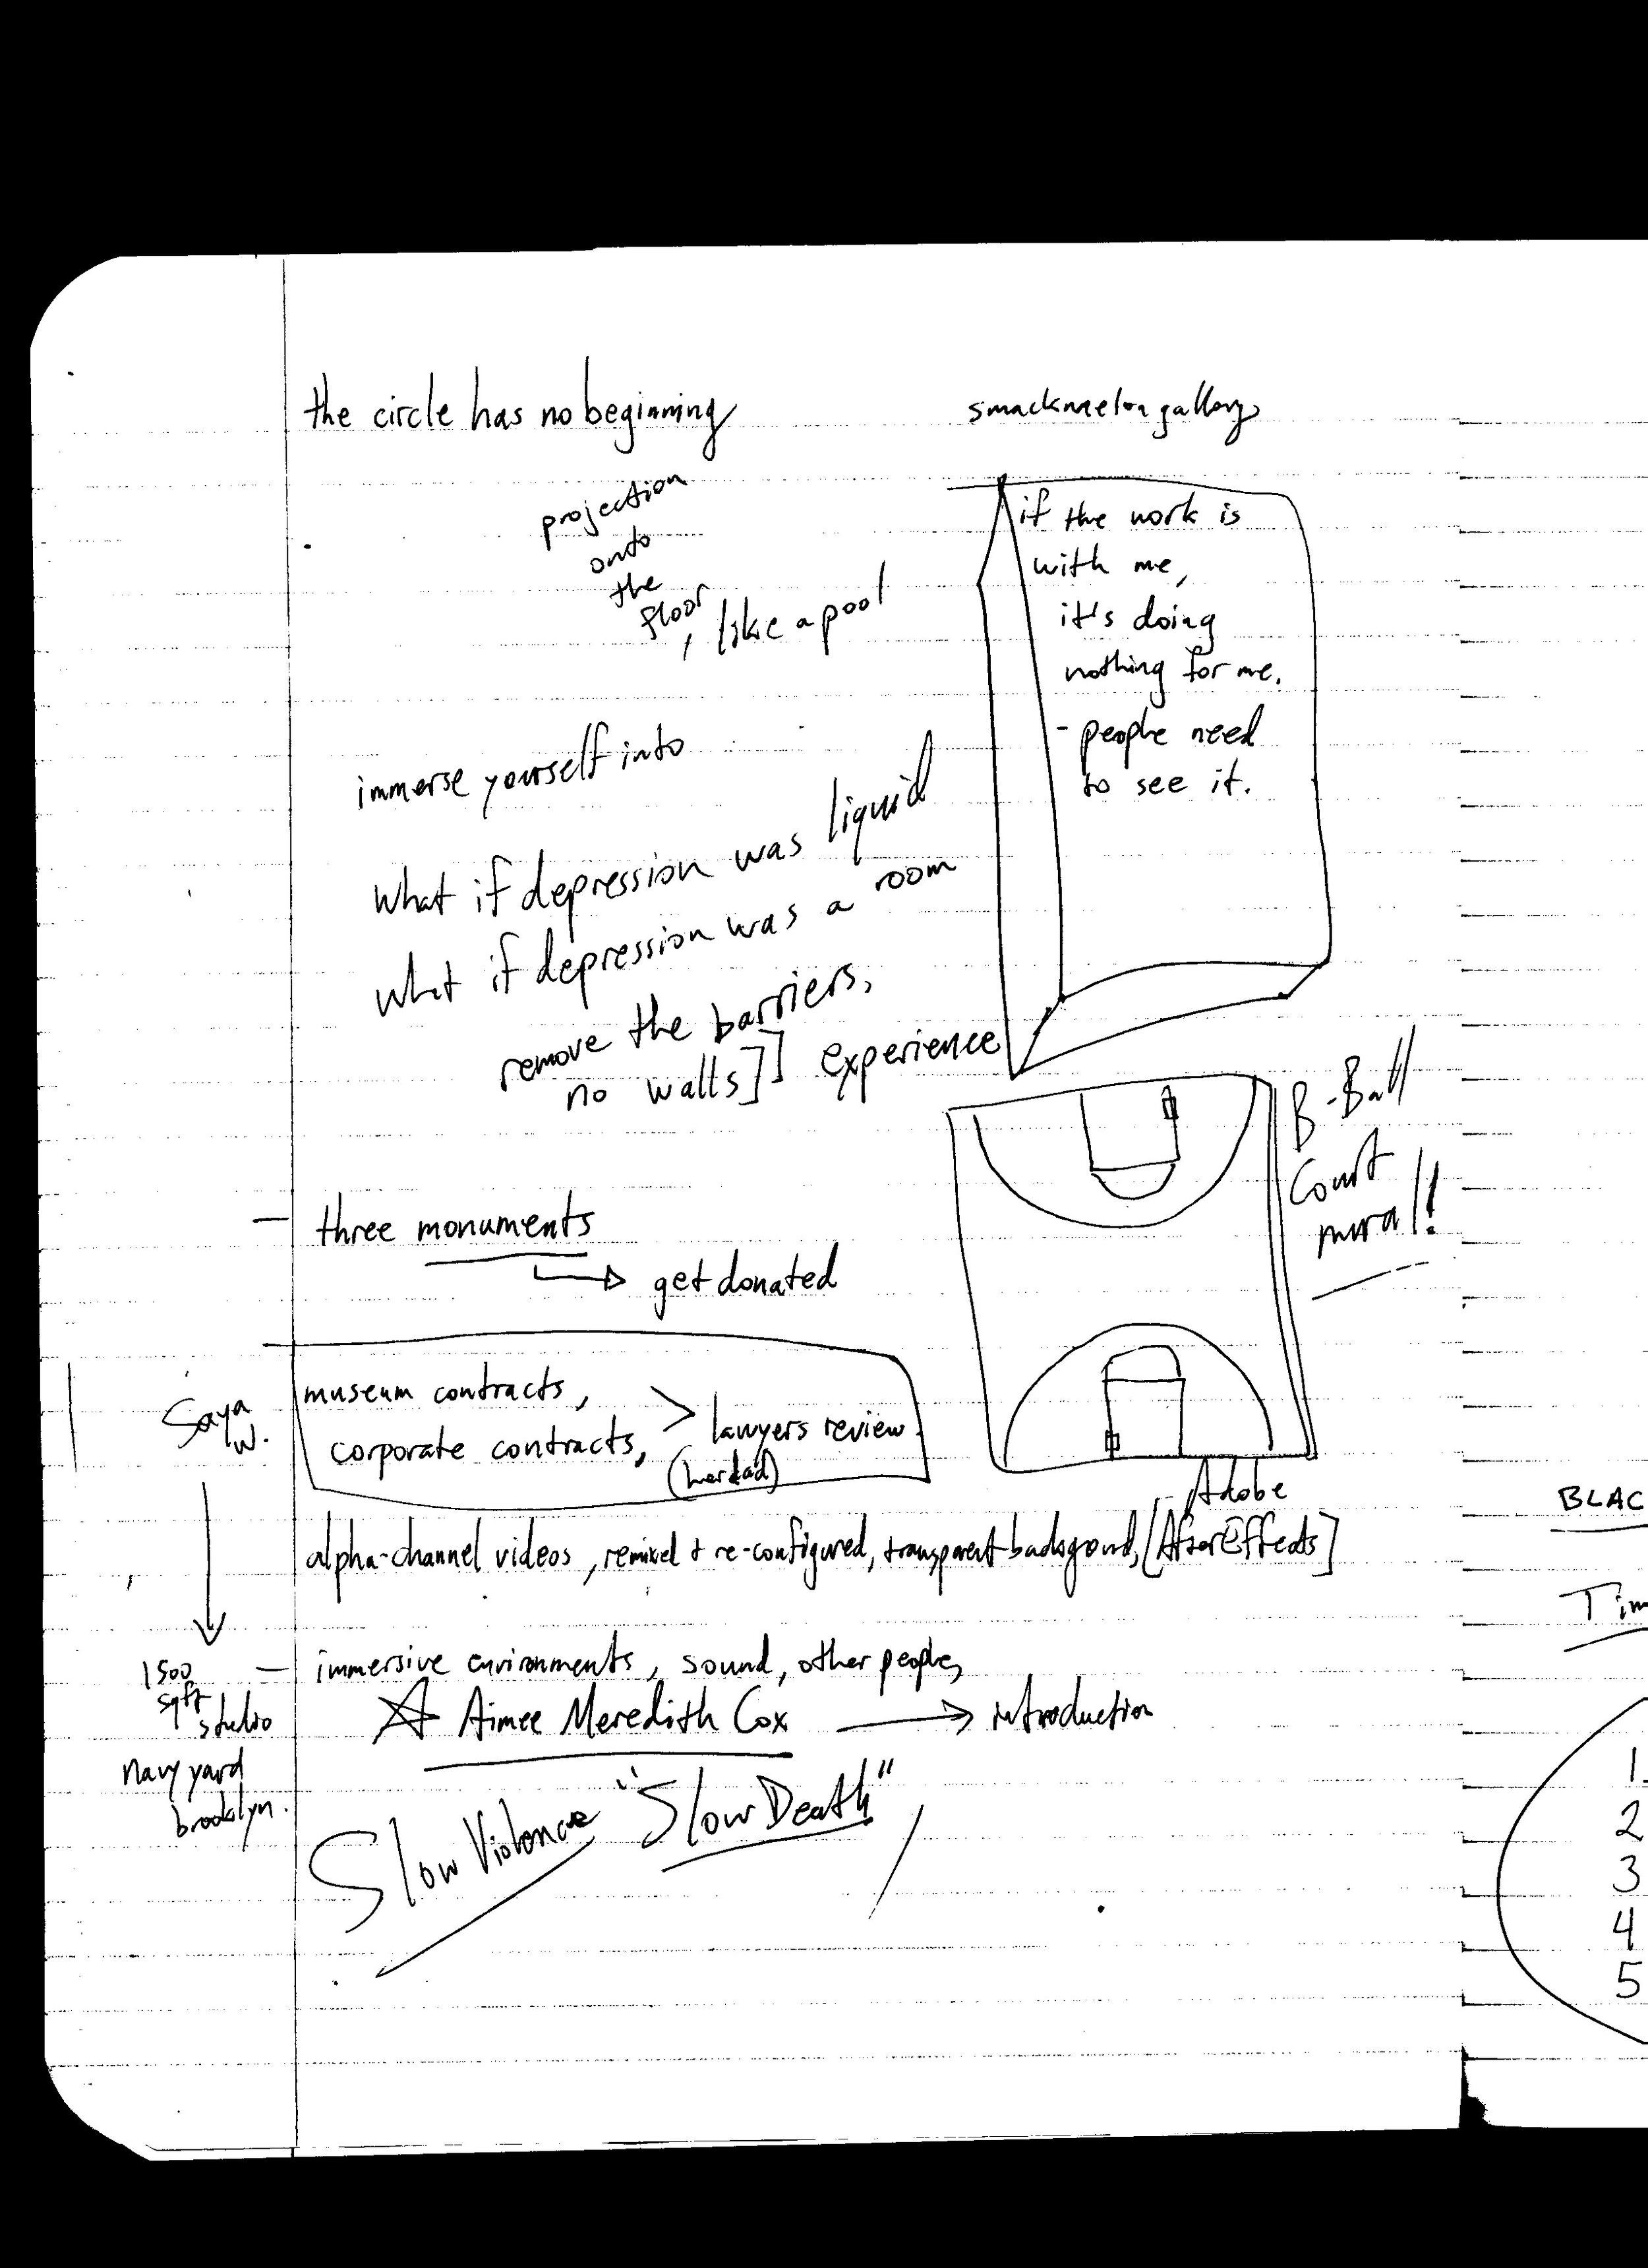 the circle has no beginning
smackmelon gallery
projection
onto
the
floor
, like a pool
if the work is
with me,
it's doing
nothing for me.
- people need
to see it.
immerse yourself into
what if depression was liquid
what if depression was a room
remove the barriers,
no walls]] experience
B-Ball
Court
mural!
— three monuments
get donated
Saya
W.
museum contracts,
corporate contracts, > lawyers review.
Adobe
alpha-channel videos, remixed + re-configured, transparent background, [AfterEffects]
1500
sqft
studio
navy yard
brooklyn.
— immersive environments, sound, other people,
Aimee Meredith Cox → introduction
Slow Violence "Slow Death"
BLAC
Tim
1.
2
3
4
5